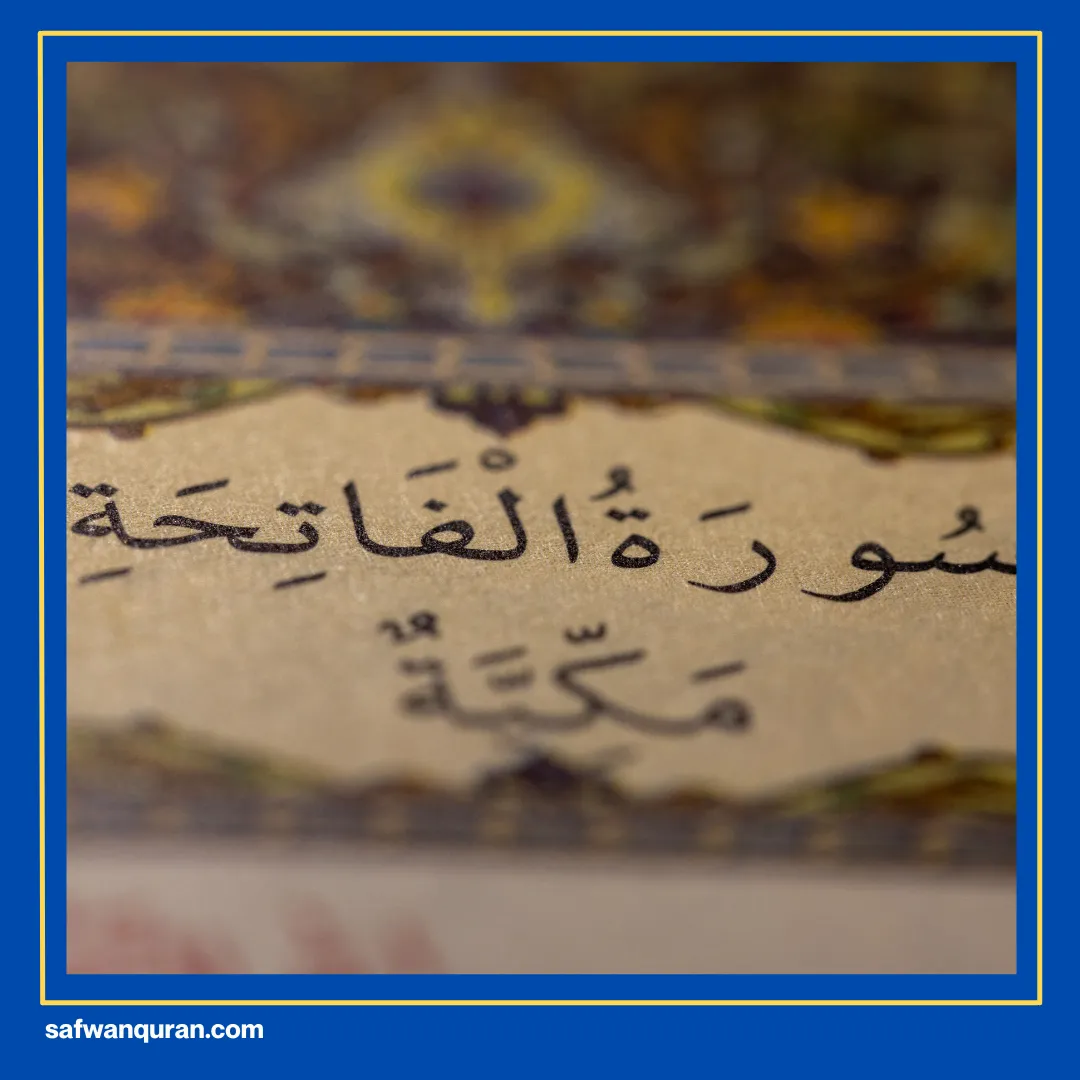 سُورَةُ الْفَاتِحَةِ
مَكِّيَّةٌ
safwanquran.com